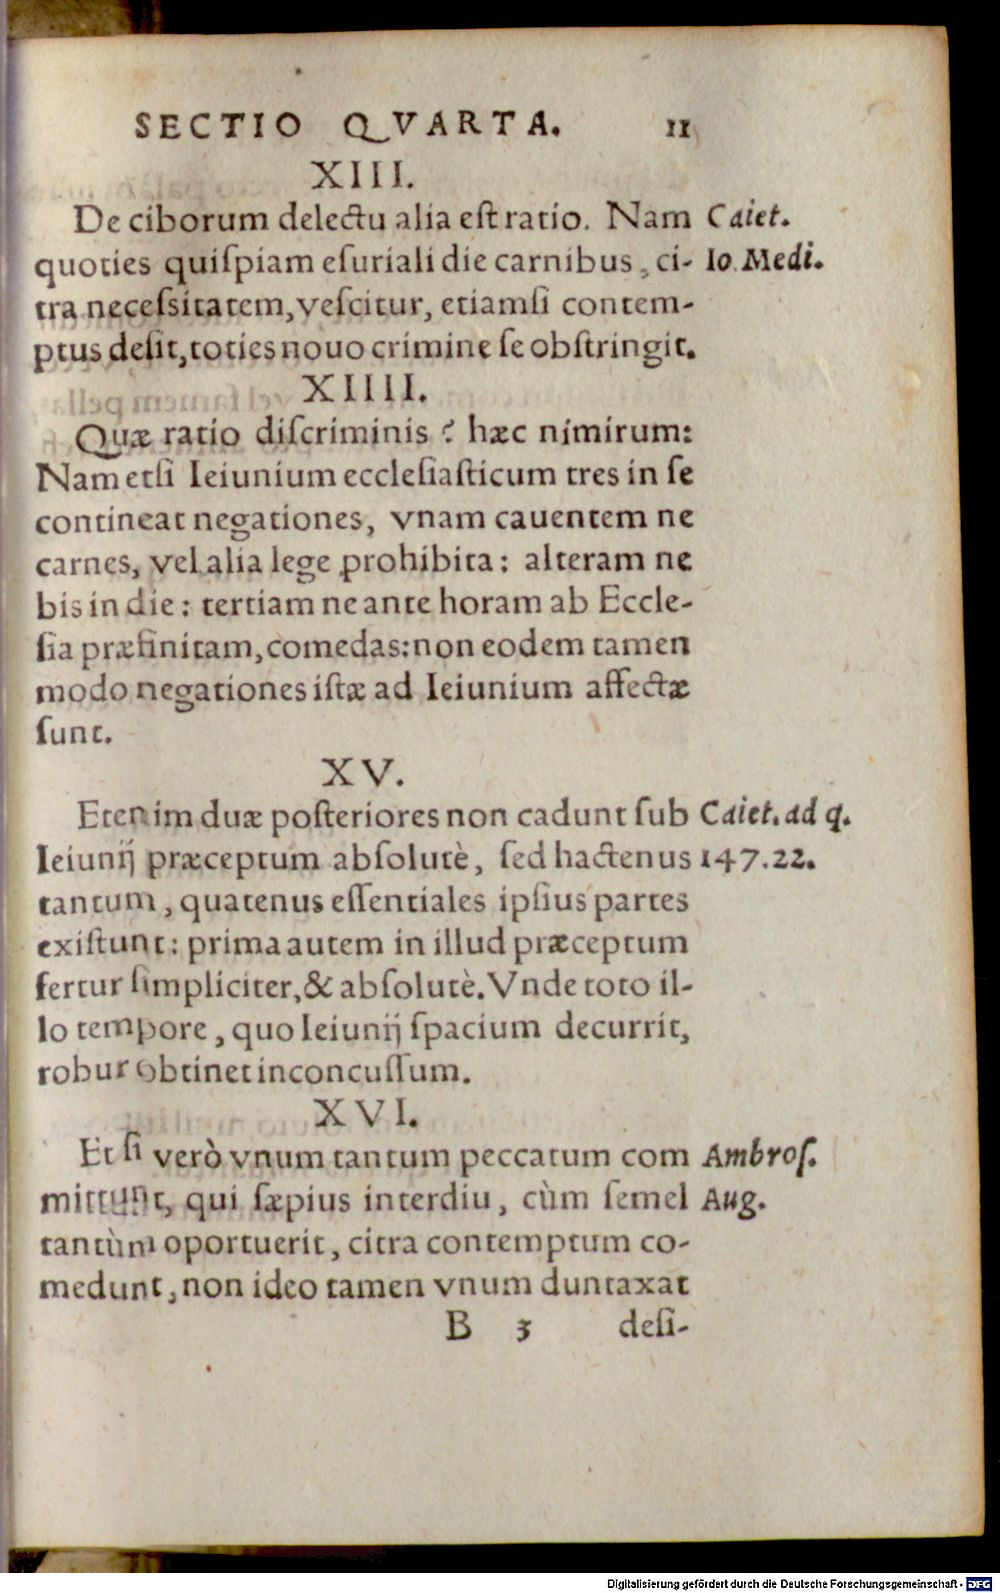 SECTIO QVARTA. 11
XIII.
De ciborum delectu alia eſt ratio. Nam Caiet.
quoties quiſpiam eſuriali die carnibus, ci- Io. Medi.
tra neceſsitatem, veſcitur, etiamſi contem-
ptus deſit, toties nouo crimine ſe obſtringit.
XIIII.
Quæ ratio diſcriminis? hæc nimirum:
Nam etſi Ieiunium eccleſiaſticum tres in ſe
contineat negationes, vnam cauentem ne
carnes, vel alia lege prohibita: alteram ne
bis in die: tertiam ne ante horam ab Eccle-
ſia præfinitam, comedas: non eodem tamen
modo negationes iſtæ ad Ieiunium affectæ
ſunt.
XV.
Etenim duæ poſteriores non cadunt ſub Caiet. ad q.
Ieiunij præceptum abſolutè, ſed hactenus 147. 22.
tantum, quatenus eſſentiales ipſius partes
exiſtunt: prima autem in illud præceptum
fertur ſimpliciter, & abſolutè. Vnde toto il-
lo tempore, quo Ieiunij ſpacium decurrit,
robur obtinet inconcuſſum.
XVI.
Et ſi verò vnum tantum peccatum com Ambroſ.
mittunt, qui ſæpius interdiu, cùm ſemel Aug.
tantùm oportuerit, citra contemptum co-
medunt, non ideo tamen vnum duntaxat
B 3 deſi-
Digitalisierung gefördert durch die Deutsche Forschungsgemeinschaft - DFG